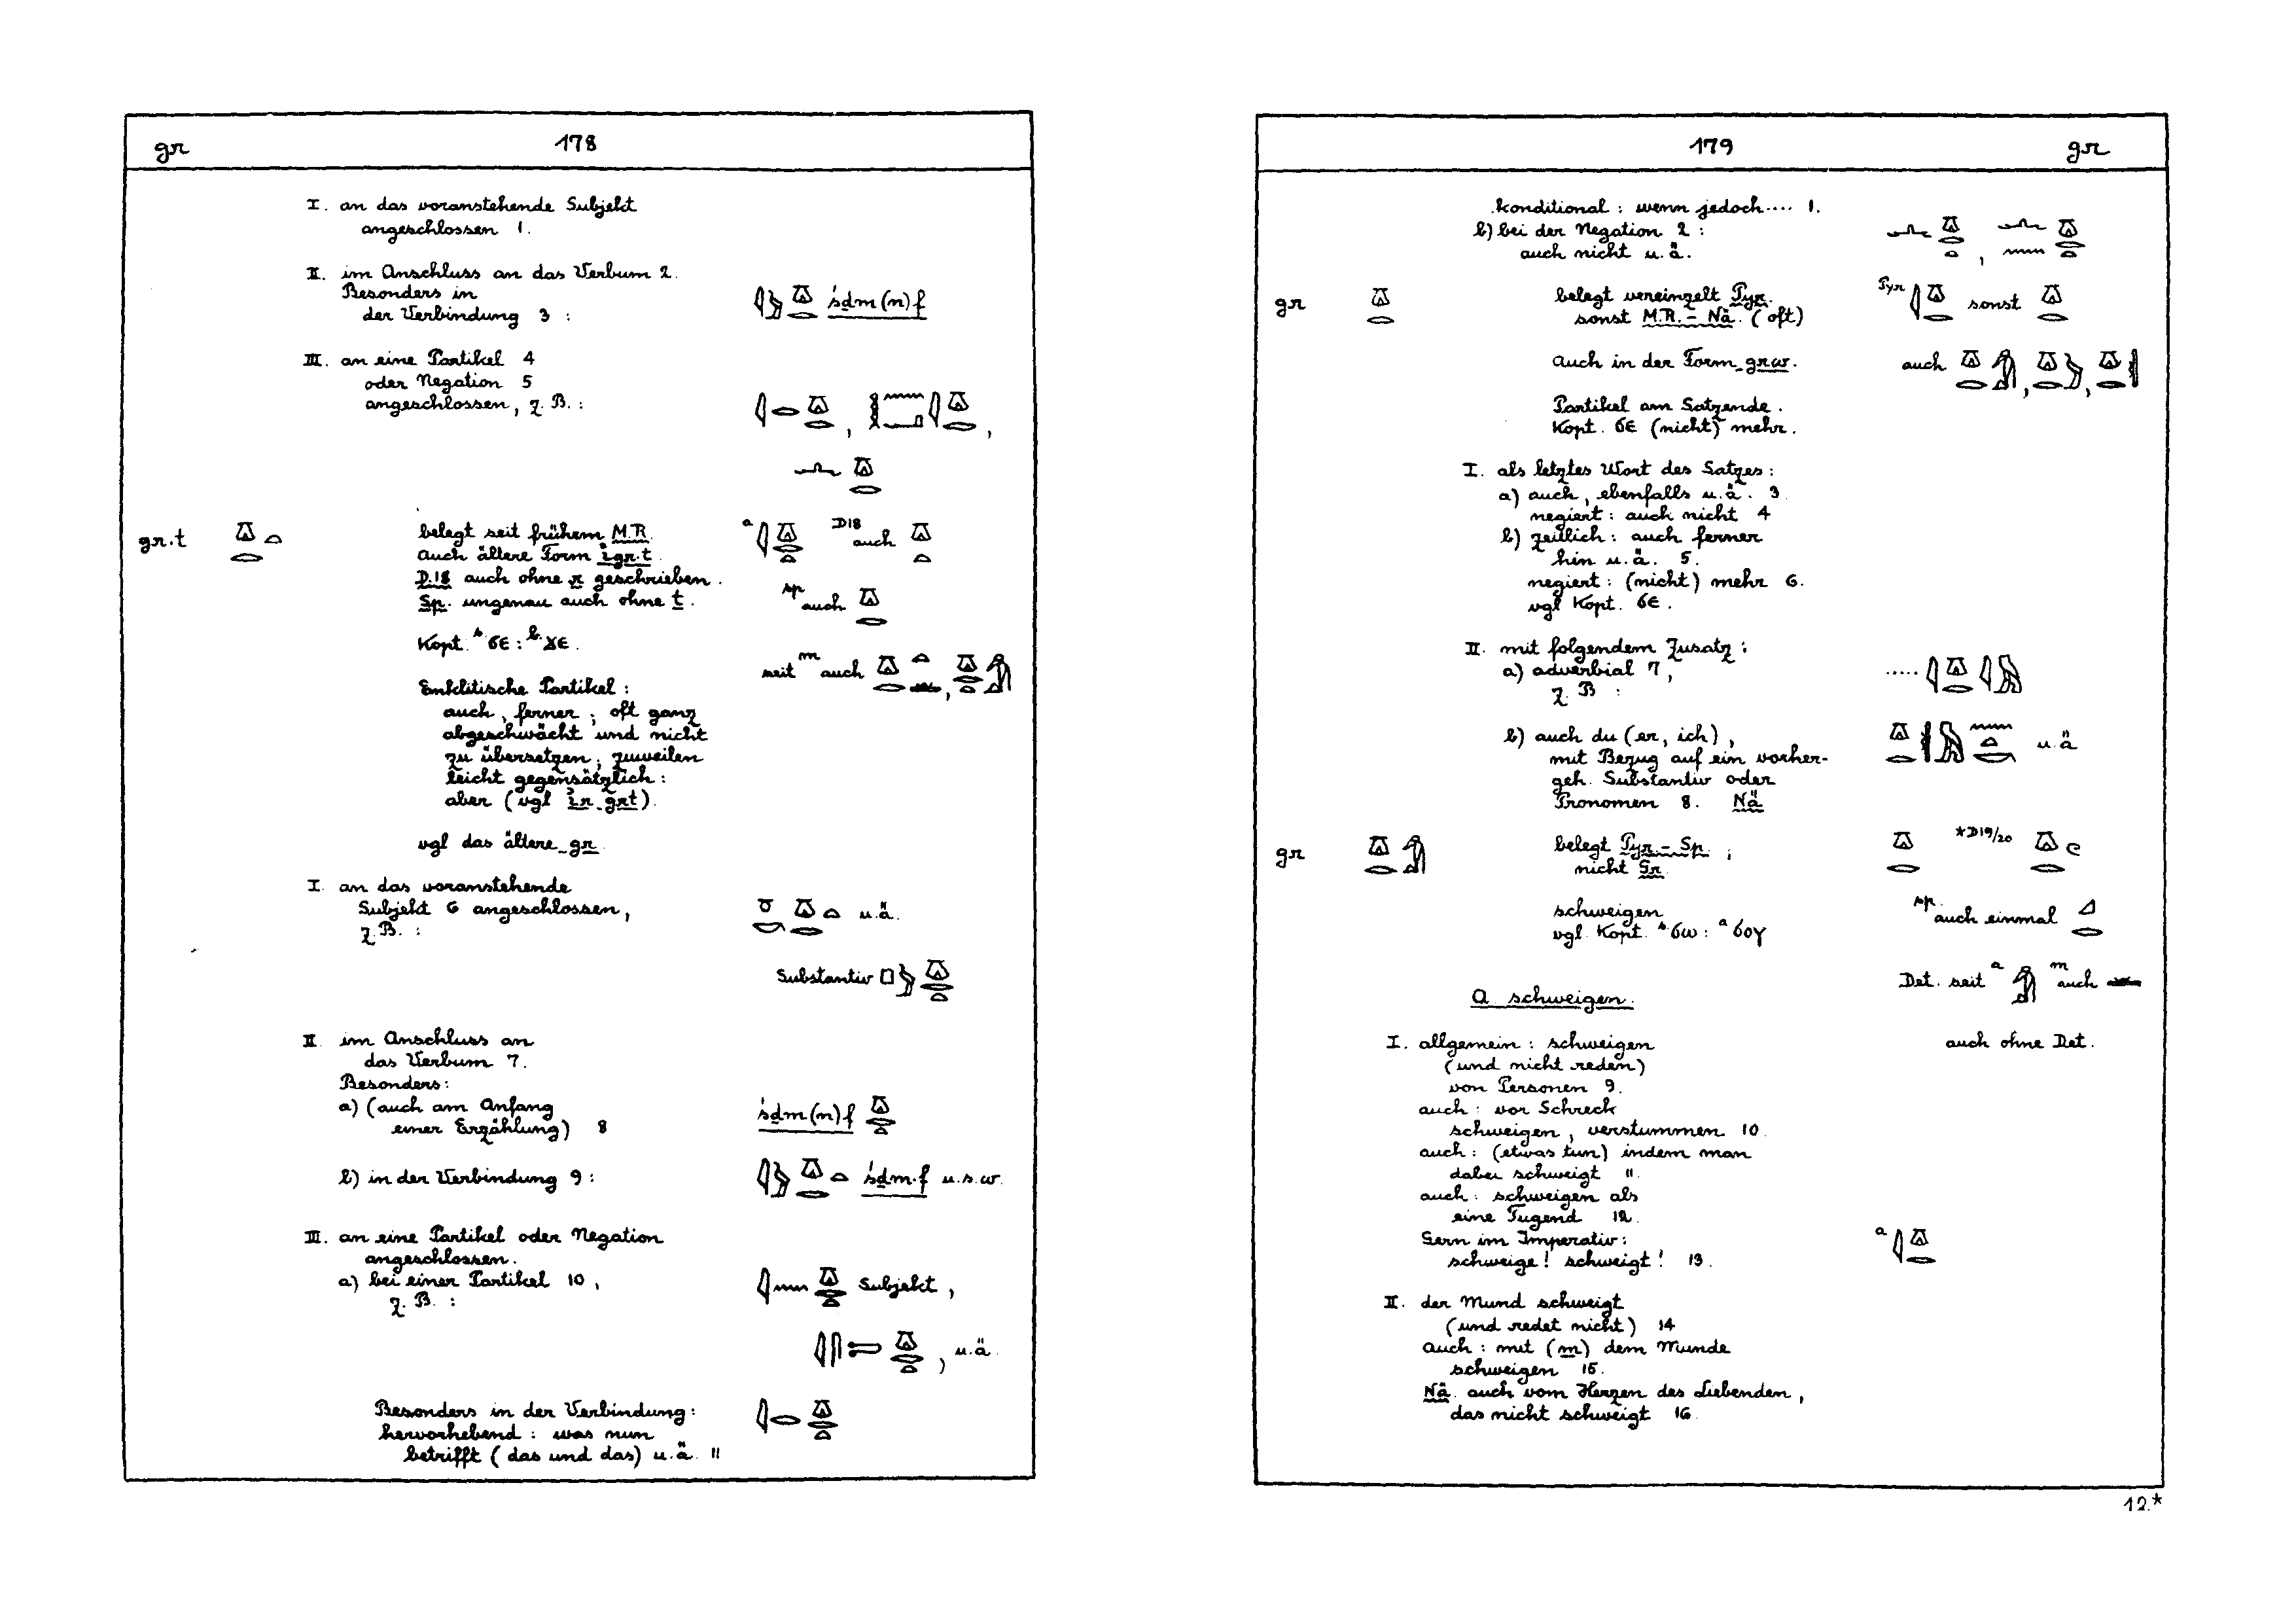 gr 178
I. an das voranstehende Subjekt
angeschlossen 1.
II. im Anschluss an das Verbum 2.
Besonders in
der Verbindung 3 : śdm(n)f
III. an eine Partikel 4
oder Negation 5
angeschlossen, z. B. :
gr.t belegt seit frühem M.R. a D18 auch
Auch ältere Form igr.t
D.18 auch ohne r geschrieben.
Sp. ungenau auch ohne t. sp auch
Kopt. s. ϭⲉ : b. ϫⲉ.
seit m auch
Enklitische Partikel :
auch, ferner; oft ganz
abgeschwächt und nicht
zu übersetzen; zuweilen
leicht gegensätzlich :
aber (vgl ir grt).
vgl das ältere gr.
I. an das voranstehende
Subjekt 6 angeschlossen, u.ä.
z. B. :
Substantiv
II. im Anschluss an
das Verbum 7.
Besonders:
a) (auch am Anfang śdm(n)f
einer Erzählung) 8
b) in der Verbindung 9 : śdm.f u.s.w.
III. an eine Partikel oder Negation
angeschlossen.
a) bei einer Partikel 10, Subjekt,
z. B. :
, u.ä.
Besonders in der Verbindung:
hervorhebend : was nun
betrifft (das und das) u.ä. 11
179 gr
konditional : wenn jedoch.... 1.
b) bei der Negation 2 :
auch nicht u.ä.
gr belegt vereinzelt Pyr. Pyr sonst
sonst M.R. - Nä. (oft)
Auch in der Form grw. auch
Partikel am Satzende.
Kopt. ϭⲉ (nicht) mehr.
I. als letztes Wort des Satzes :
a) auch, ebenfalls u.ä. 3.
negiert : auch nicht 4
b) zeitlich : auch ferner
hin u.ä. 5.
negiert : (nicht) mehr 6.
vgl Kopt. ϭⲉ.
II. mit folgendem Zusatz :
a) adverbial 7, .....
z. B. :
b) auch du (er, ich), u.ä
mit Bezug auf ein vorher-
geh. Substantiv oder
Pronomen 8. Nä
gr belegt Pyr. - Sp. ; *D19/20
nicht Gr.
schweigen sp. auch einmal
vgl. Kopt. s. ϭⲱ : a ϭⲟⲩ
Det. seit a m auch
A schweigen.
I. allgemein : schweigen auch ohne Det.
(und nicht reden)
von Personen 9.
auch : vor Schreck
schweigen, verstummen 10.
auch : (etwas tun) indem man
dabei schweigt 11.
auch : schweigen als
eine Tugend 12.
Gern im Imperativ : a
schweige! schweigt! 13.
II. der Mund schweigt
(und redet nicht) 14
Auch : mit (m) dem Munde
schweigen 15.
Nä. auch vom Herzen des Liebenden,
das nicht schweigt 16.
12.*